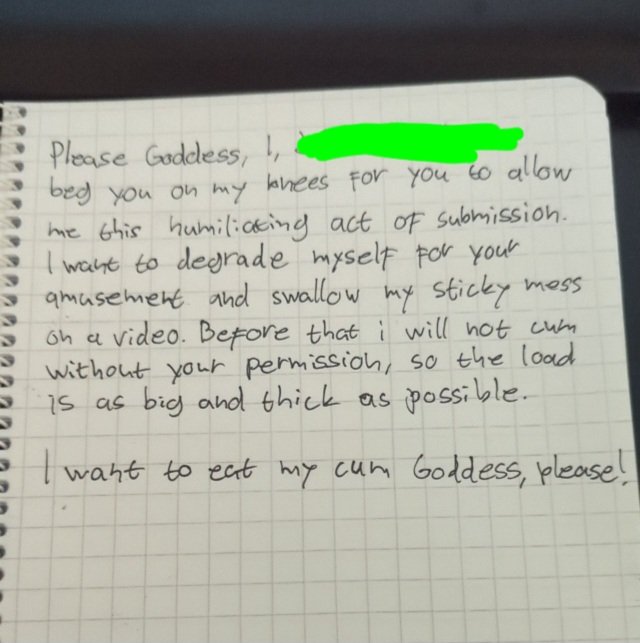 Please Goddess, I,
beg you on my knees for you to allow
me this humiliating act of submission.
I want to degrade myself for your
amusement and swallow my sticky mess
on a video. Before that i will not cum
without your permission, so the load
is as big and thick as possible.
I want to eat my cum Goddess, please!